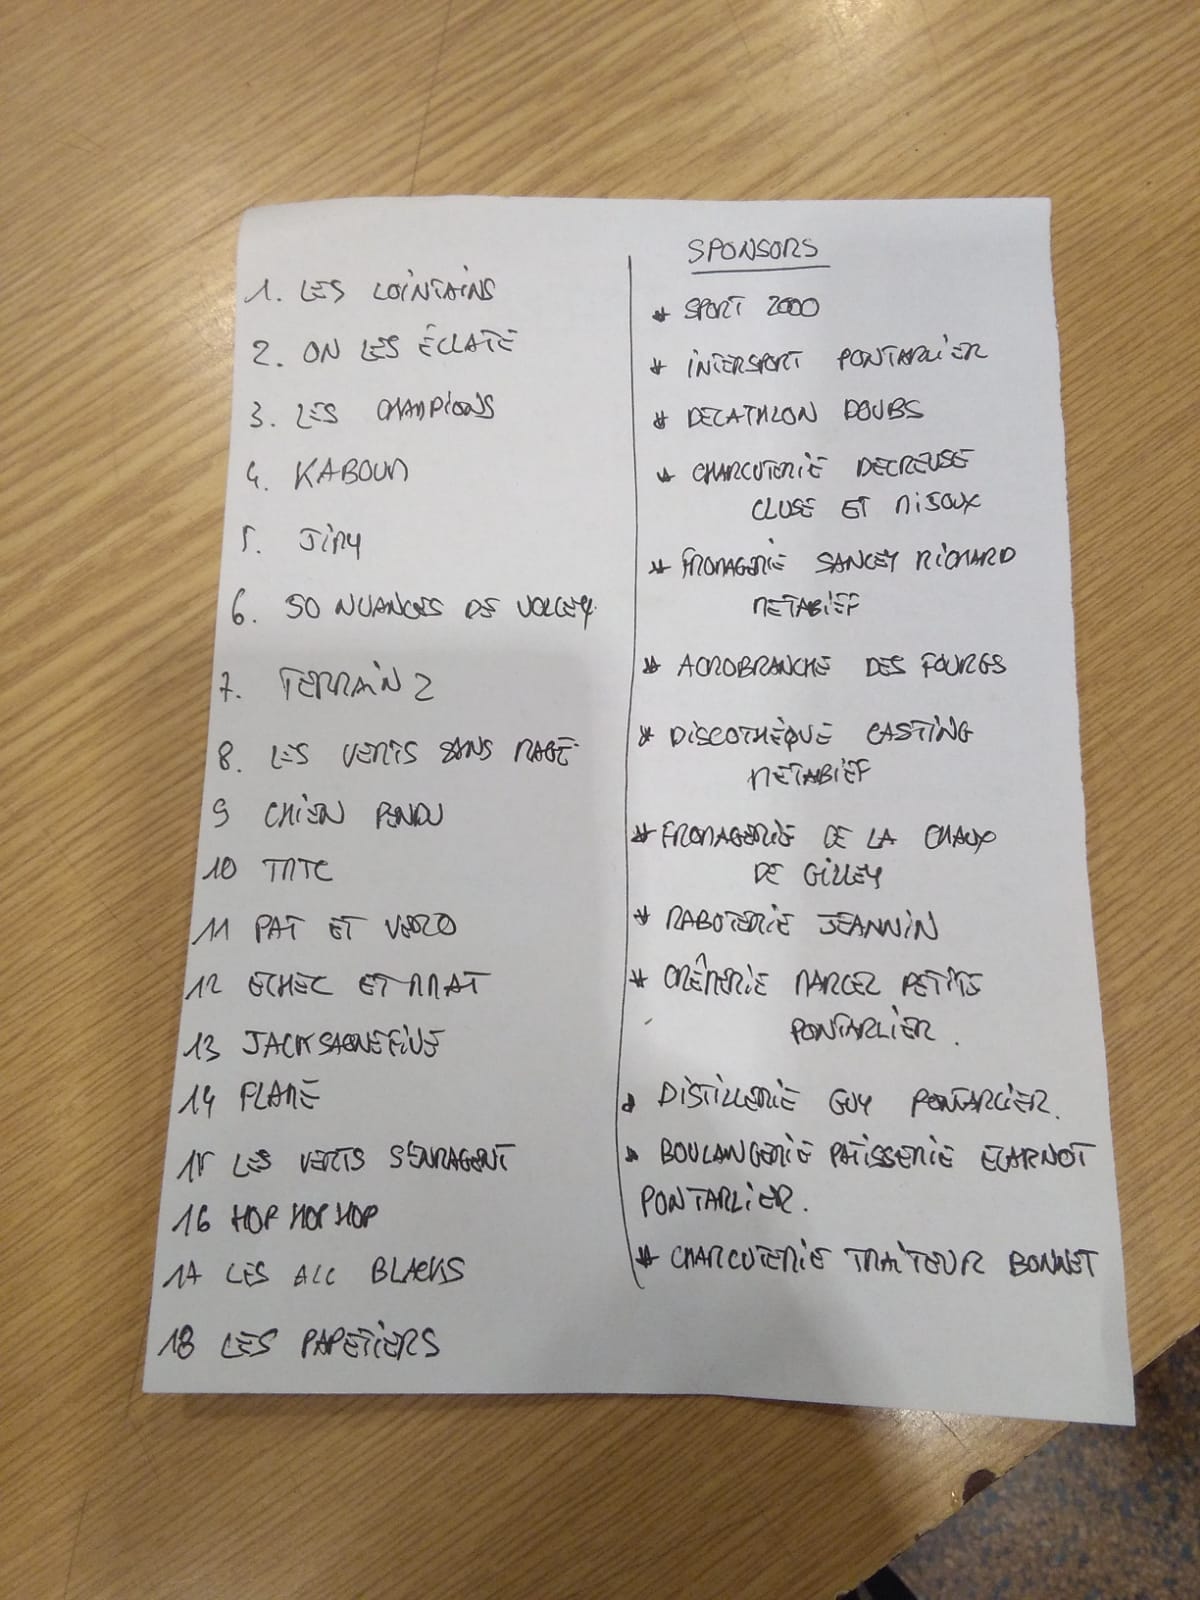 1. LES LOINTAINS
2. ON LES ÉCLATE
3. LES CHAMPIONS
4. KABOUM
5. JIMY
6. 50 NUANCES DE VOLLEY.
7. TERRAIN 2
8. LES VERTS SANS RAGE
9 CHIEN PENDU
10 TMTC
11 PAT ET VERO
12 ECHEC ET MMAT
13 JACKSAONEFIVE
14 FLAME
15 LES VERTS S'ENRAGENT
16 HOP HOP HOP
17 LES ALL BLACKS
18 LES PAPETIERS
SPONSORS
* SPORT 2000
* INTERSPORT PONTARLIER
* DECATHLON DOUBS
* CHARCUTERIE DECREUSE
CLUSE ET MIJOUX
* FROMAGERIE SANCEY RICHARD
METABIEF
* ACROBRANCHE DES FOURGS
* DISCOTHÈQUE CASTING
METABIEF
* FROMAGERIE DE LA CHAUX
DE GILLEY
* RABOTERIE JEANNIN
* CRÊMERIE MARCEL PETITE
PONTARLIER.
* DISTILLERIE GUY PONTARLIER.
* BOULANGERIE PATISSERIE ECARNOT
PONTARLIER.
* CHARCUTERIE TRAITEUR BONNET